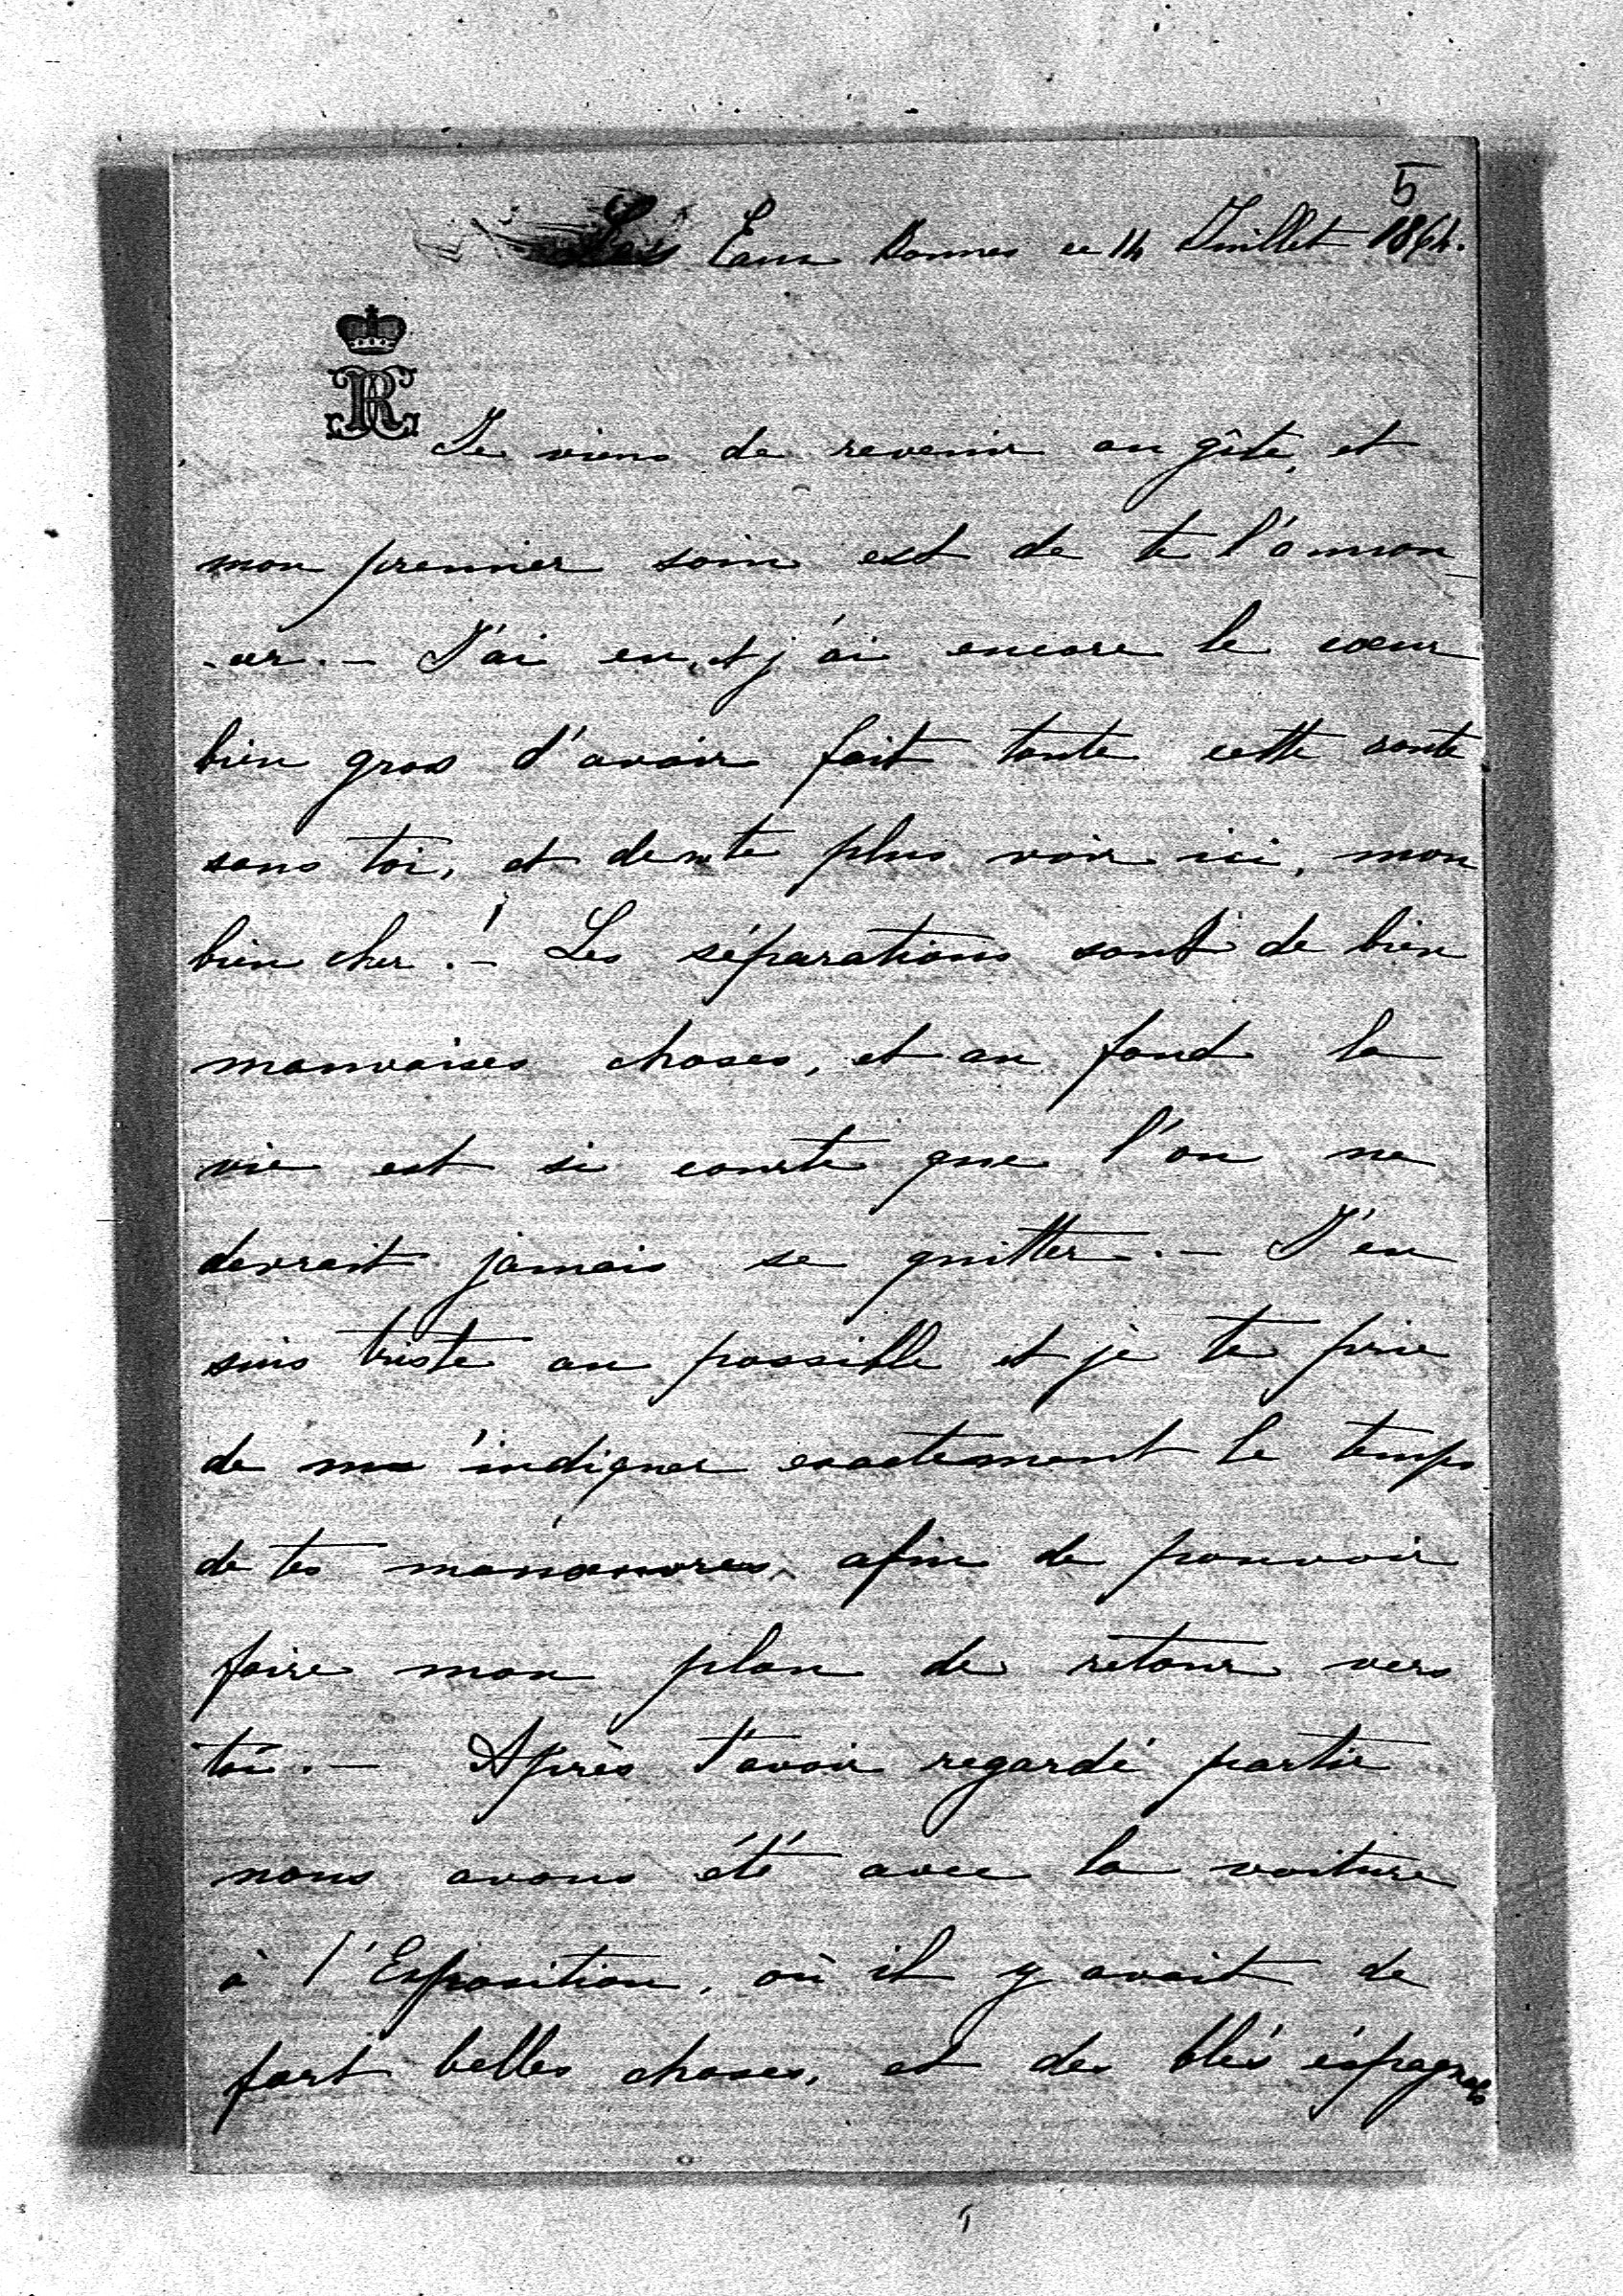 5
Les Eaux Bonnes ce 14 Juillet 1864.
Je viens de revenir au gîte, et
mon premier soin est de te l'annon-
-cer. – J'ai eu, et j'ai encore le cœur
bien gros d'avoir fait toute cette route
sans toi, et de ne te plus voir ici, mon
bien cher! – Les séparations sont de bien
mauvaises choses, et au fond la
vie est si courte que l'on ne
devrait jamais se quitter. – J'en
suis triste au possible et je te prie
de m'indiquer exactement le temps
de tes manœuvres, afin de pouvoir
faire mon plan de retour vers
toi. – Après t'avoir regardé partir
nous avons été avec la voiture
à l'Exposition, où il y avait de
fort belles choses, et des blés éspagnols